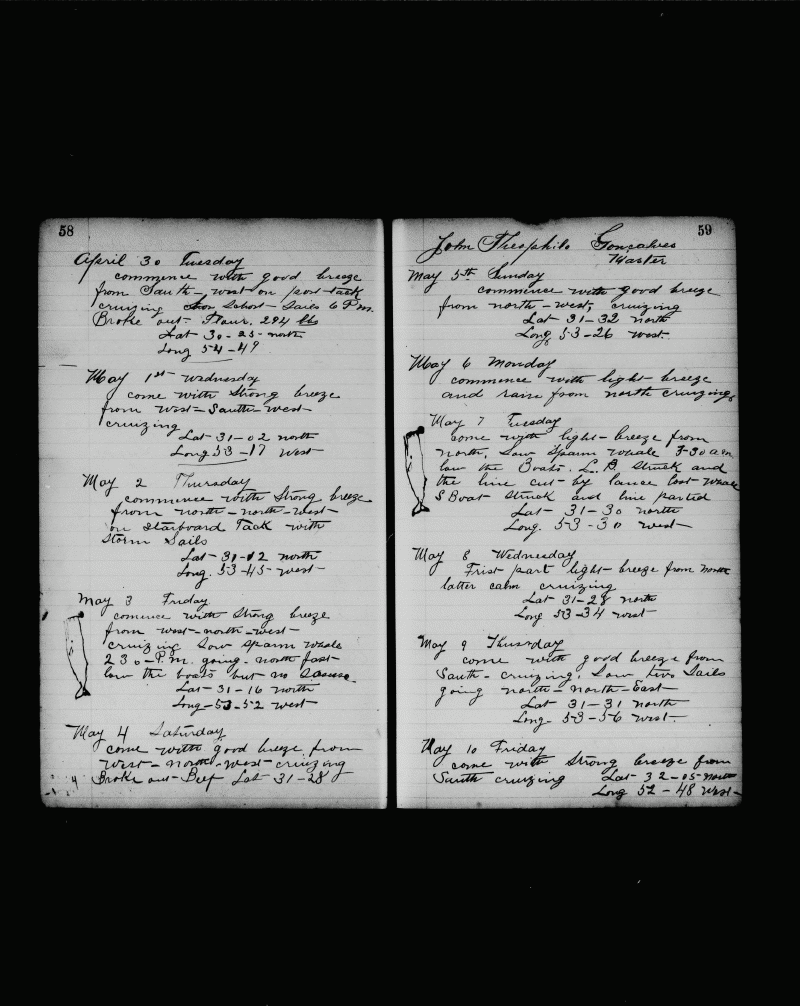 58
April 30 Tuesday
commence with good breeze
from South-west on port tack
cruizing Shor Sails 6 P.m.
Broke out Flour. 294 lbs
Lat 30-25-north
Long 54-49
May 1st Wednesday
come with Strong breeze
from West-South-west
cruizing
Lat 31-02 north
Long 53-17 West
May 2 Thursday
commence with Strong breeze
from north-north-west
on Starboard Tack with
Storm Sails
Lat 31-12 north
Long. 53-45-west
May 3 Friday
comence with Strong breeze
from west-north-west
cruizing Saw Sparm Whale
2 30-P.m. going north fast
low the boats but no
Lat-31-16 north
Long-53-52 west
May 4 Saturday
come with good breeze from
West-north-west-cruizing
Broke out-Beef Lat 31-28
59
John Theophilo Gonçalves
Master
May 5th Sunday
commence with good breeze
from north-west, cruizing
Lat 31-32 north
Long 53-26 west.
May 6 Monday
commence with light breeze
and rain from north cruizing
May 7 Tuesday
come with light-breeze from
north, Saw Sparm Whale 7-30 a.m
low the Boats. L.B Struck and
the line cut by lance lost Whale
S Boat Struck and line parted
Lat 31-30 north
Long. 53-30 west
May 8 Wednesday
Frist part light-breeze from north
latter calm cruizing
Lat 31-28 north
Long 53-34 west
May 9 Thursday
come with good breeze from
South-cruizing. Saw two Sails
going north-north-East
Lat 31-31 north
Long. 53-56 west.
May 10 Friday
come with Strong breeze from
South cruizing Lat-32-05-north
Long 52-48 West